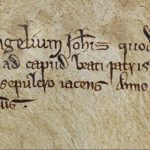 ngelium Johis quod
ad capud beati patris
sepulcro iacens Anno